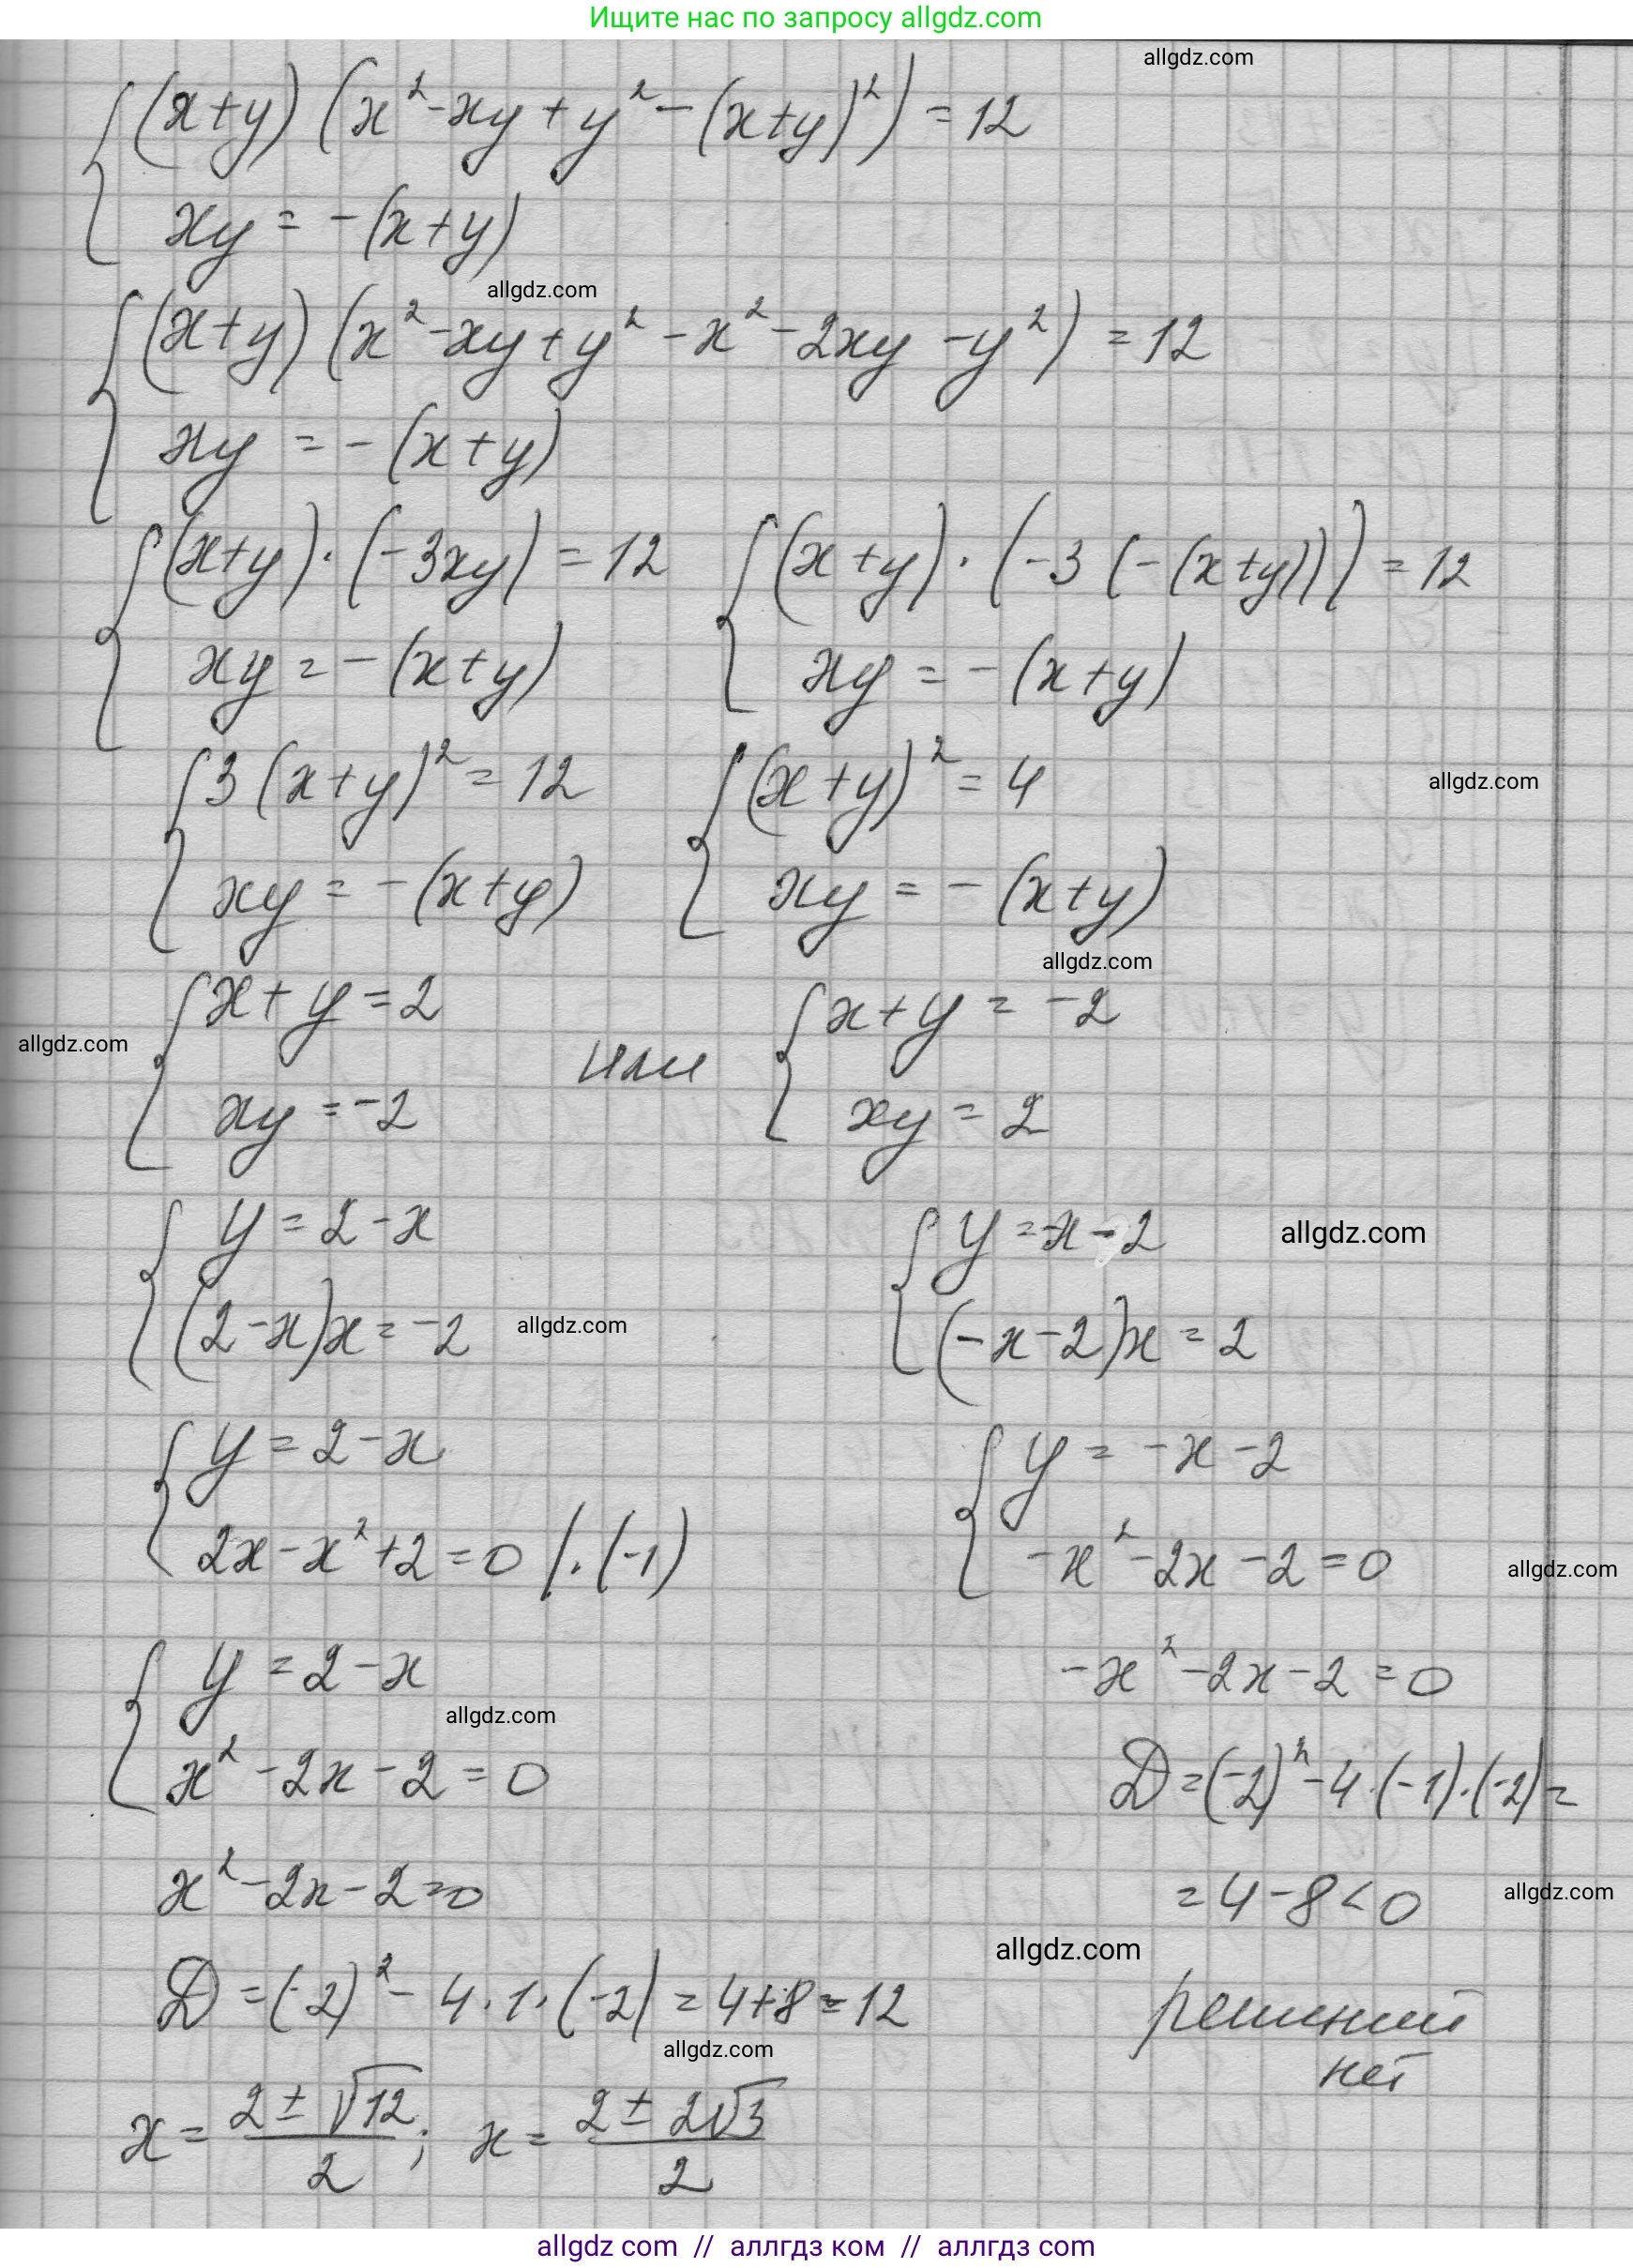 Ищите нас по запросу allgdz.com
allgdz.com
(x+y)(x²-xy+y²-(x+y)²)=12
xy=-(x+y)
allgdz.com
(x+y)(x²-xy+y²-x²-2xy-y²)=12
xy=-(x+y)
(x+y)·(-3xy)=12 (x+y)·(-3(-(x+y)))=12
xy=-(x+y) xy=-(x+y)
3(x+y)²=12 (x+y)²=4
allgdz.com
xy=-(x+y) xy=-(x+y)
allgdz.com
x+y=2 или x+y=-2
allgdz.com
xy=-2 xy=2
y=2-x y=-x-2
allgdz.com
(2-x)x=-2 (-x-2)x=2
allgdz.com
y=2-x y=-x-2
2x-x²+2=0 /·(-1) -x²-2x-2=0
allgdz.com
y=2-x -x²-2x-2=0
allgdz.com
x²-2x-2=0 D=(-2)²-4·(-1)·(-2)=
x²-2x-2=0 =4-8<0
allgdz.com
allgdz.com
D=(-2)²-4·1·(-2)=4+8=12 решиний
нет
allgdz.com
x=(2±√12)/2; x=(2±2√3)/2
allgdz com // аллгдз ком // аллгдз com